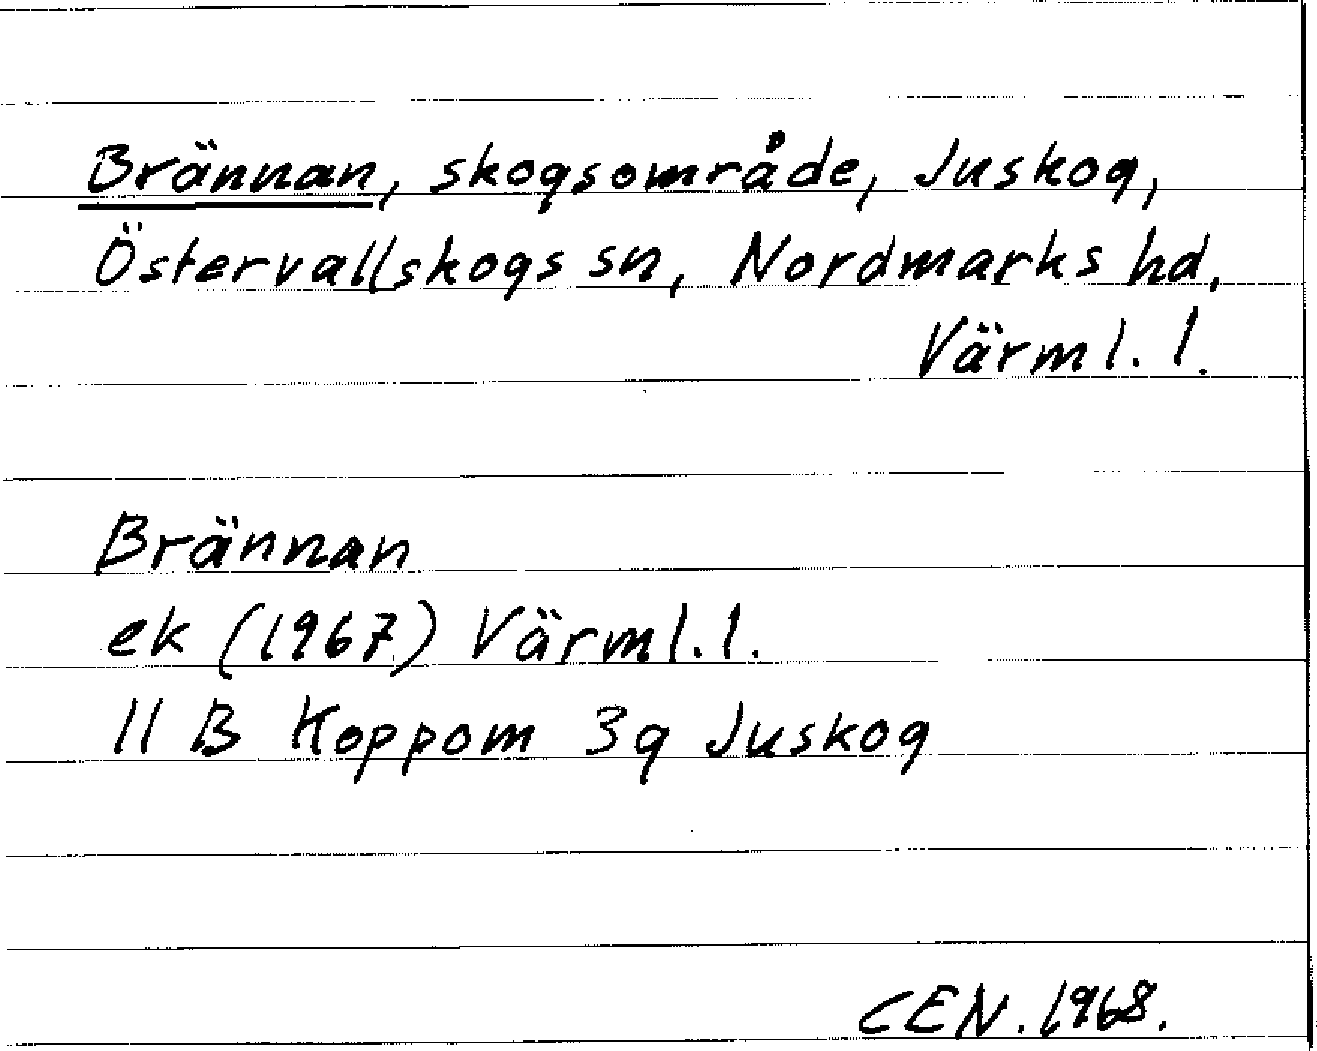 Brännan, skogsområde, Juskog,
Östervallskogs sn, Nordmarks hd,
Värml. l.
Brännan
ek (1967) Värml. l.
11 B Koppom 3g Juskog
CEN. 1968.